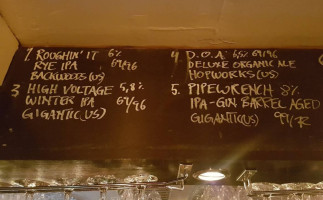 1. ROUGHIN' IT 6%
RYE IPA 69/96
BACKWOODS (US)
3 HIGH VOLTAGE 5,8%
WINTER IPA 64/96
GIGANTIC(US)
4 D.O.A. 6,5% 69/96
DELUXE ORGANIC ALE
HOPWORKS (US)
5. PIPEWRENCH 8%
IPA-GIN BARREL AGED
GIGANTIC(US)